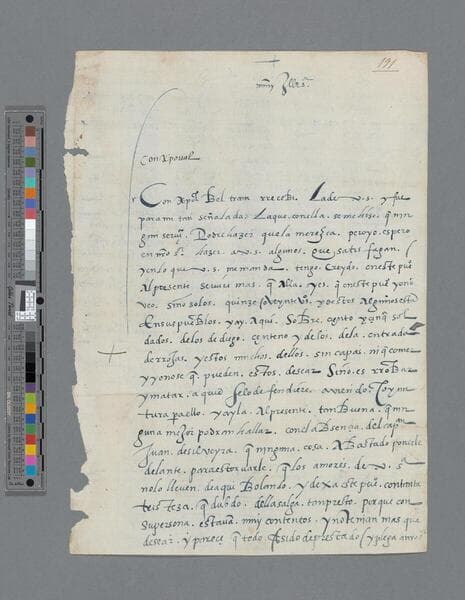 191
muy Illes.
Con Xpoval
Con Xpol Beltram rrecebi. Lade v. s. y fue
para mi tan señalada. La que conella. seme hiso. q nin
gun servi. Podre hazer que la meresca. pero yo espero
hazer a v. s. algunos. que satis fagan.
yenlo que v. s. me manda. tengo. Creydo. eneste pu
Al presente se sirve mas q Alla. y es. q eneste pu yo no
veo. sino solos. quinze o veynte. y de estos Algunos est
En sus pueblos. y ay. Aqui. Sobre. ciento y cinq sol
dados. delos de diego. centeno y de los. dela. entrada
de rrojas. y estos muchos. dellos. sin capas. ni q comer
y yo no se q. pueden. estos. desear Sino. es rrobar
y matar. a quien Selo defendiere.
tura pa ello. y ay la. Al presente. tan Buena. q nin
guna mejor podran hallar. con la absenzia. del capn
Juan. desilveyra. q ninguna. cosa. A Bastado ponsele
delante. para estorvarle. q los amores. de v. sa
no lo lleven. de aqui Bolando. y dexa este pu. contenta
tristeza. q dubdo. della salga. tan presto. porque con
Su persona. estava. muy contentos. y no tenian mas que
desear. y parece q todo. A sido de prestado